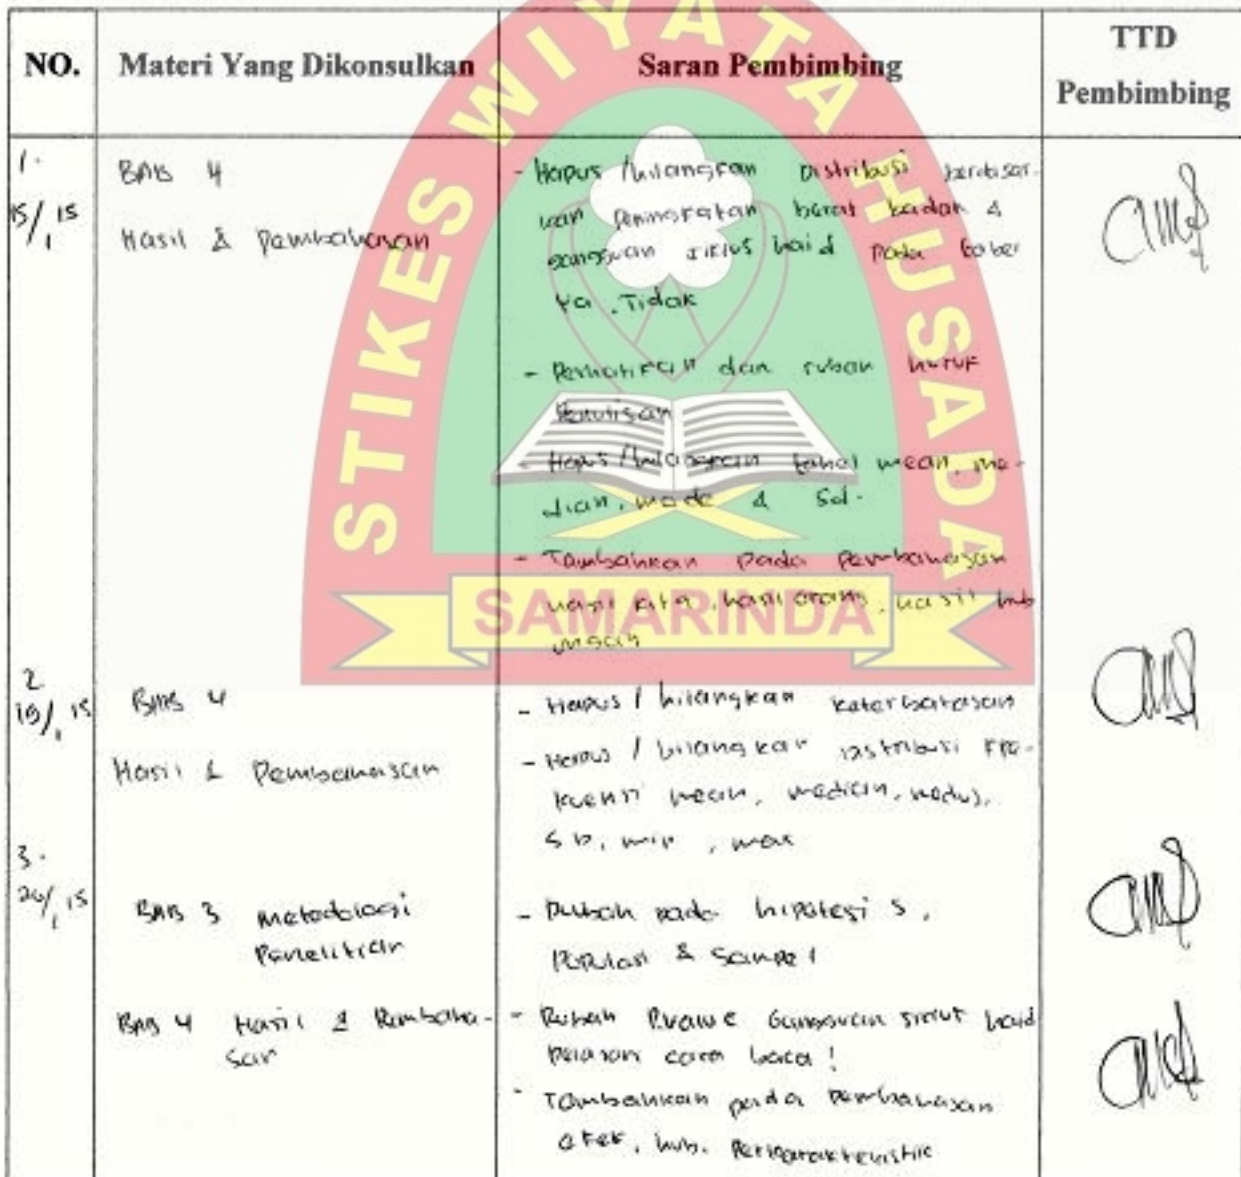 NO.
Materi Yang Dikonsulkan
Saran Pembimbing
TTD
Pembimbing
STIKES WIYATA HUSADA
SAMARINDA
1.
15/1 15
BAB 4
Hasil & Pembahasan
- Hapus / hilangkan Distribusi berdasar-
kan peningkatan berat badan &
gangguan siklus haid pada
Ya, Tidak
- Perhatikan dan rubah huruf
Penulisan
- Hapus / hilangkan tabel mean, me-
dian, mode & Sd.
- Tambahkan pada pembahasan
hasil kita, hasil orang, hasil hub
ungan
2
19/1 15
BAB 4
Hasil & Pembahasan
- Hapus / hilangkan keterbatasan
- Hapus / hilangkan Distribusi Fre-
kuensi mean, median, modus,
SD, min, max
3.
/1 15
BAB 3 metodologi
Penelitian
- Rubah pada hipotesi s,
Populasi & Sampel
BAB 4 Hasil & Pembaha-
san
- Rubah Pvalue Gangguan siklut haid
cara baca!
- Tambahkan pada pembahasan
efek, hub.